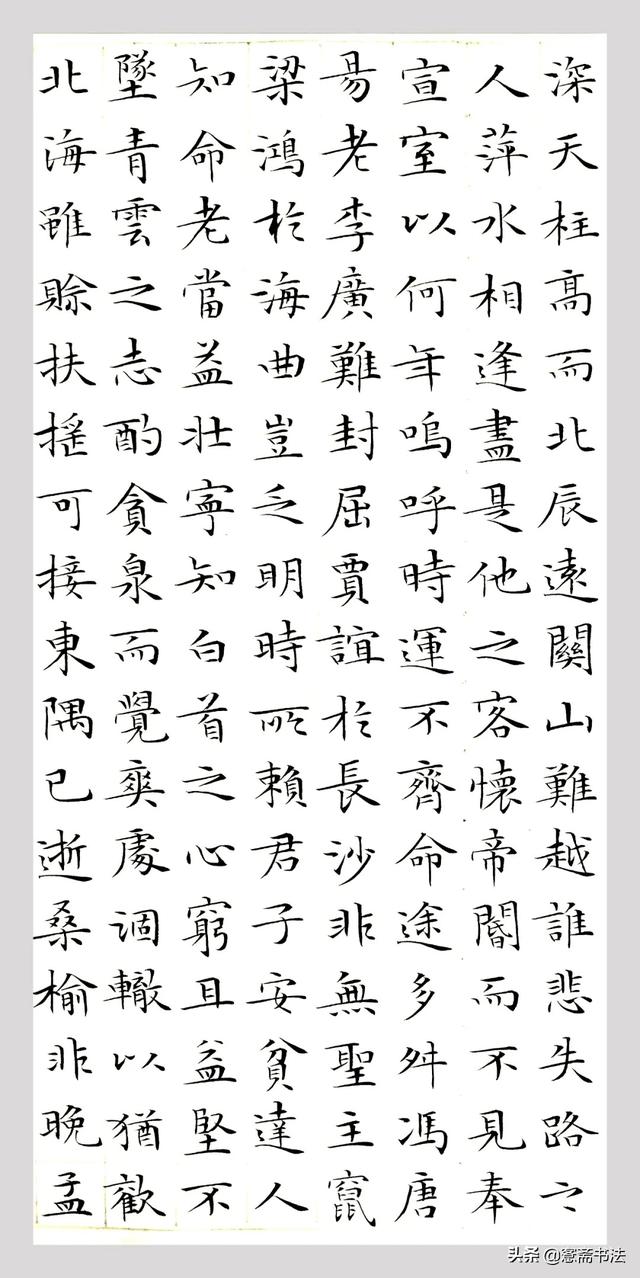 深天柱高而北辰遠關山難越誰悲失路之
人萍水相逢盡是他之客懷帝閽而不見奉
宣室以何年嗚呼時運不齊命途多舛馮唐
易老李廣難封屈賈誼於長沙非無聖主竄
梁鴻於海曲豈乏明時所賴君子安貧達人
知命老當益壯寧知白首之心窮且益堅不
墜青雲之志酌貪泉而覺爽處涸轍以猶歡
北海雖賒扶搖可接東隅已逝桑榆非晚孟
头条 @愙斋书法